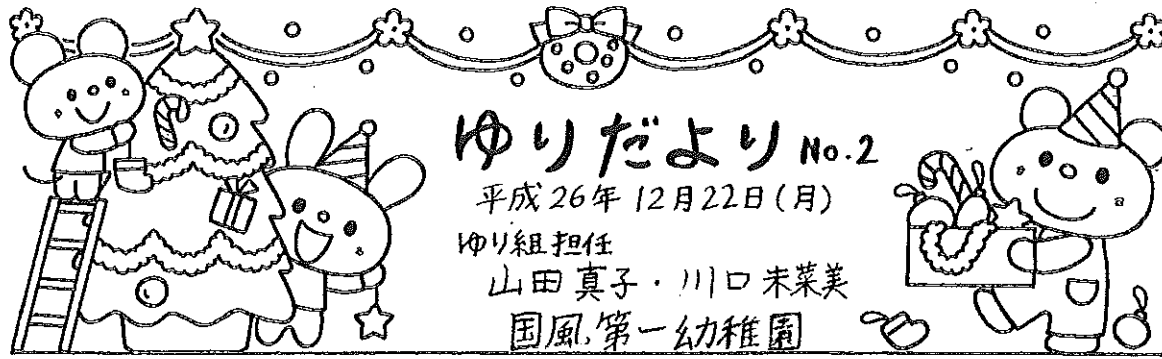 ゆりだより No.2
平成26年12月22日(月)
ゆり組担任
山田真子・川口未菜美
国風第一幼稚園